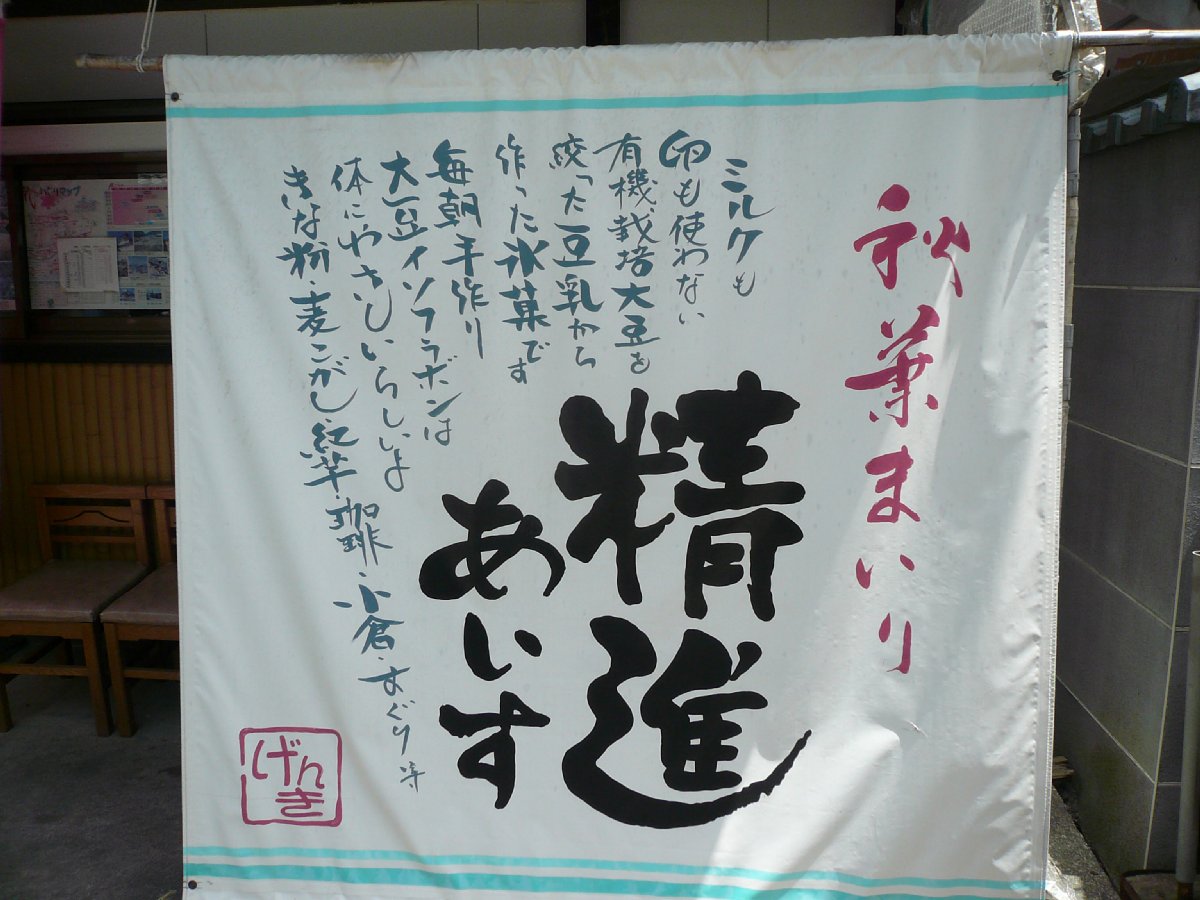 秋葉まいり
精進
あいす
ミルクも
卵も使わない
有機栽培大豆を
絞った豆乳から
作った氷菓です
毎朝手作り
大豆イソフラボンは
体にやさしいらしいよ
きな粉・麦こがし・紅芋・珈琲・小倉・すぐり等
げんき